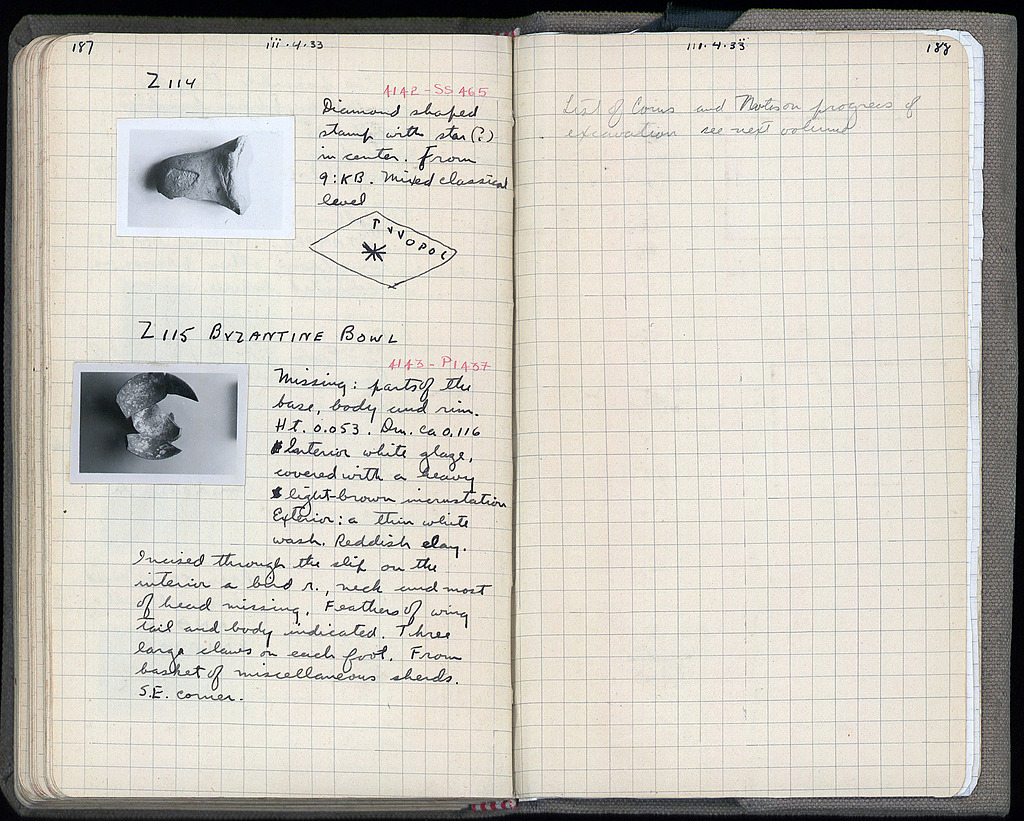 187
iii.4.33
Z 114
4142 - SS 465
Diamond shaped
stamp with star (?)
in center. From
9: KB. Mixed classical
level
Z 115 BYZANTINE BOWL
4143 - P1437
Missing: parts of the
base, body and rim.
Ht. 0.053. Dm. ca 0.116
Interior white glaze,
covered with a heavy
light-brown incrustation
Exterior: a thin white
wash. Reddish clay.
Incised through the slip on the
interior a bird r., neck and most
of head missing. Feathers of wing
tail and body indicated. Three
large claws on each foot. From
basket of miscellaneous sherds.
S.E. corner.
iii.4.33
188
List of Coins and Notes on progress of
excavation see next volume